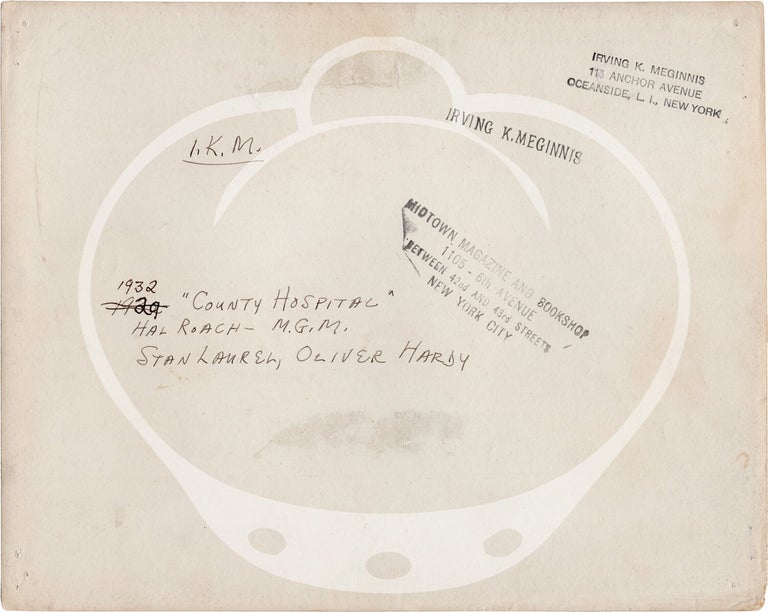 IRVING K. MEGINNIS
113 ANCHOR AVENUE
OCEANSIDE, L. I., NEW YORK
IRVING K. MEGINNIS
I.K.M.
MIDTOWN MAGAZINE AND BOOKSHOP
1105 - 6th AVENUE
BETWEEN 42nd AND 43rd STREETS
NEW YORK CITY
1932
1929 "COUNTY HOSPITAL"
HAL ROACH - M.G.M.
STAN LAUREL, OLIVER HARDY